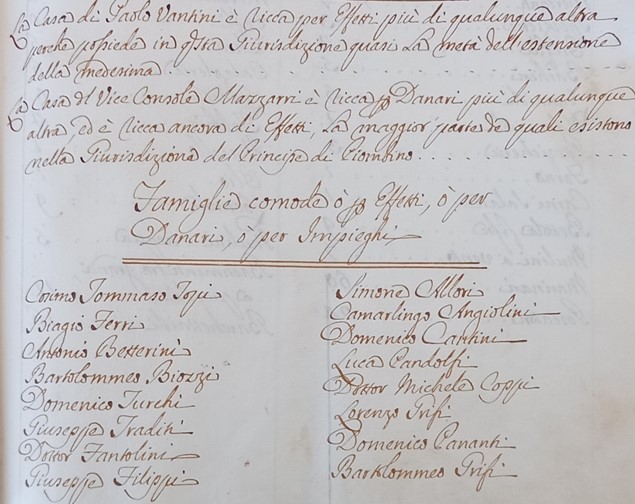 La Casa di Paolo Vantini è ricca per Effetti più di qualunque altra
perche possiede in qsta Giurisdizione quasi la metà dell'estensione
della medesima
La Casa dl Vice Console Mazzarri è ricca p Danari più di qualunque
altra, ed è ricca ancora di Effetti, la maggior parte de quali esistono
nella Giurisdizione del Principe di Piombino
Famiglie comode ò p Effetti, ò per
Danari, ò per Impieghi
Cosimo Tommaso Topi
Biagio Ferri
Antonio Betterini
Bartolommeo Biozzi
Domenico Turchi
Giuseppe Traditi
Dottor Fantolini
Giuseppe Filippi
Simone Allori
Camarlingo Angiolini
Domenico Cantini
Luca Pandolfi
Dottor Michele Coppi
Lorenzo Grifi
Domenico Pananti
Bartolommeo Grifi